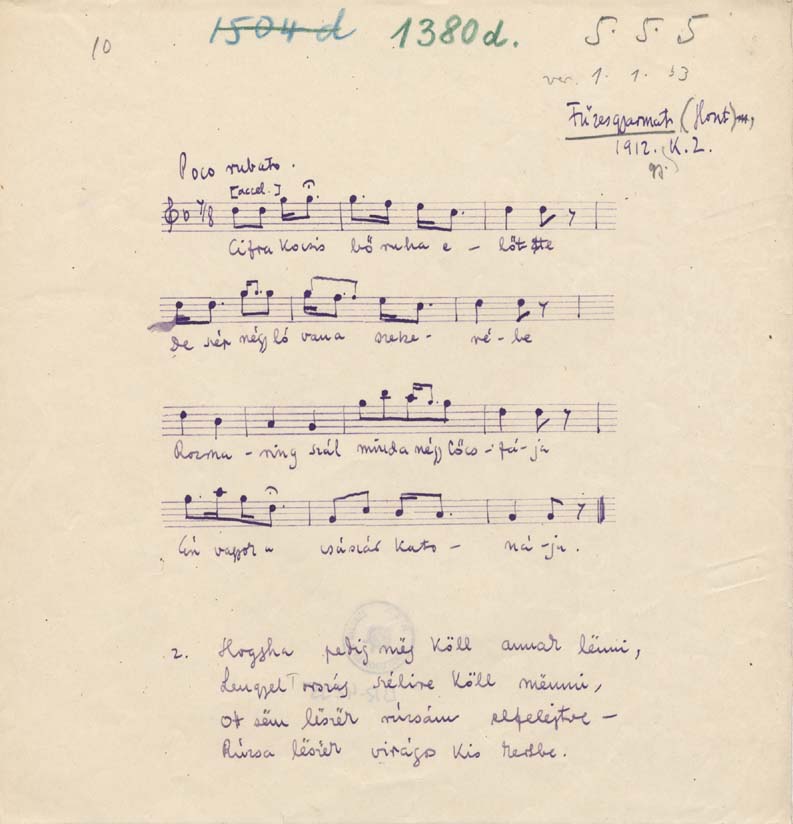 10 1504 d 1380 d. 5. 5. 5
ver. 1. 1. b3
Füzesgyarmat (Hont) m,
1912. K. Z.
gy.
Poco rubato.
[accel.]
7/8
Cifra kocsis bő ruha e - lőtte
De szép négy ló van a szeke - ré - be
Rozma - ring szál minda négy lőcs - fá - ja
Én vagyok a császár kato - ná - ja.
2. Hogyha pedig még köll annak lënni,
Lengyel ország szélire köll mënni,
Ot sëm lëszëk rúzsám elfelejtve -
Rúzsa lëszëk virágos kis kertbe.